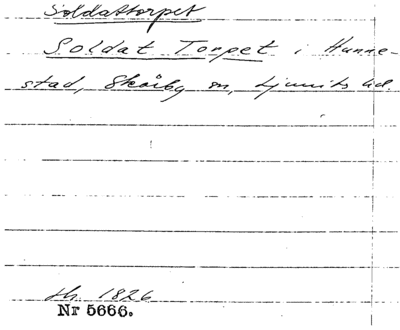 Soldattorpet
Soldat Torpet i Hunne-
stad, Skårby sn, Ljunits hd.
sk. 1826
Nr 5666.